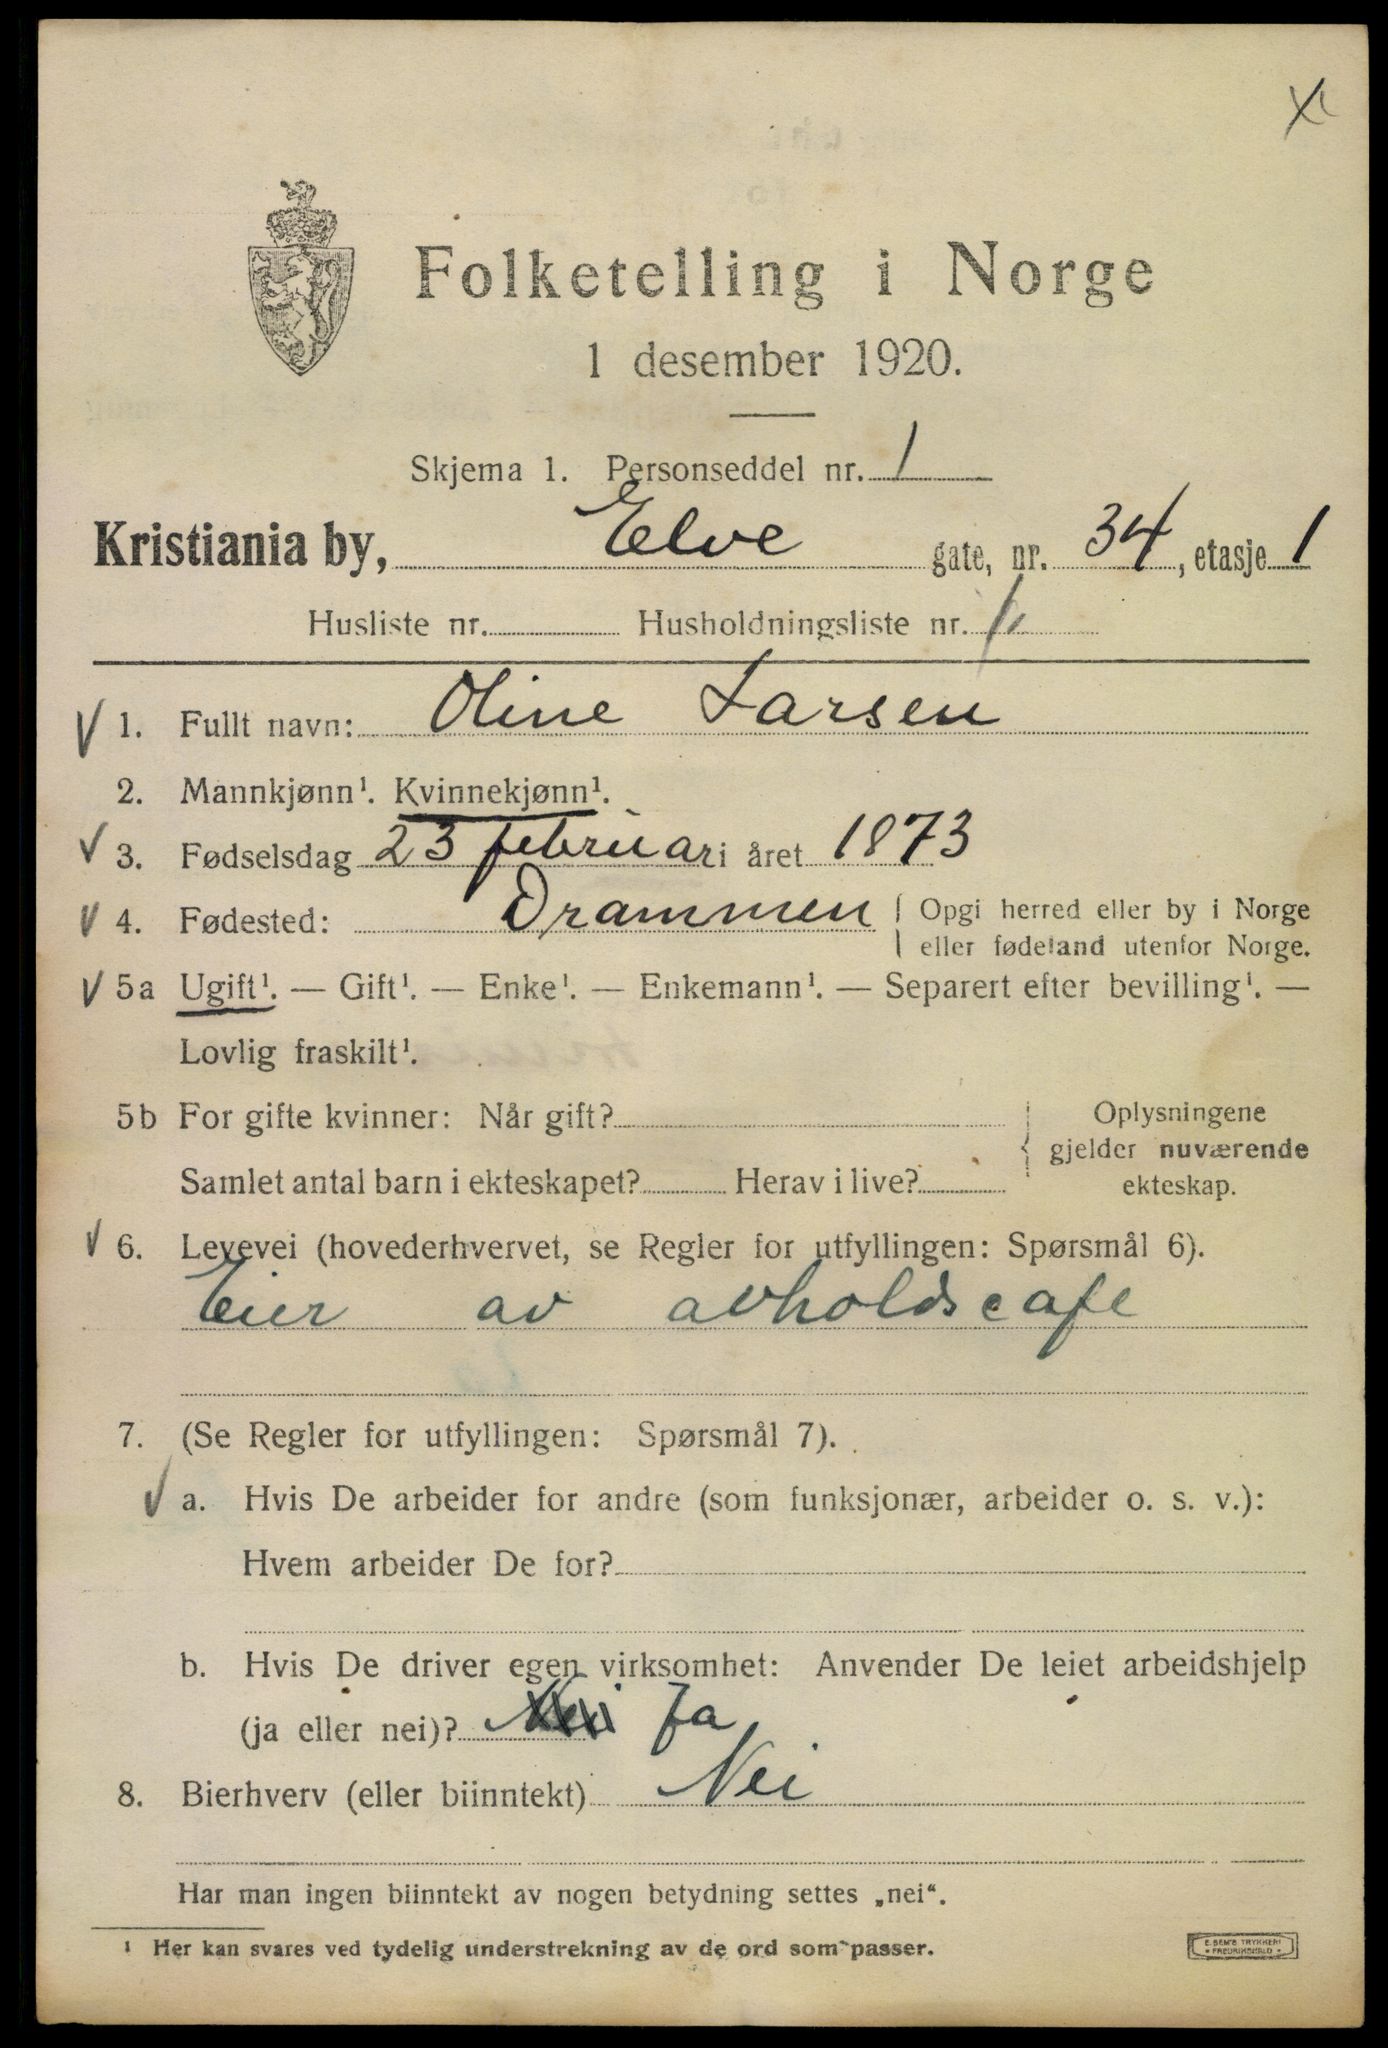 Folketelling i Norge
1 desember 1920.
Skjema 1. Personseddel nr. 1
Kristiania by, Elve gate, nr. 34, etasje 1
Husliste nr. Husholdningsliste nr. 1
1. Fullt navn: Oline Larsen
2. Mannkjønn¹. Kvinnekjønn¹.
3. Fødselsdag 23 februar i året 1873
4. Fødested: Drammen { Opgi herred eller by i Norge
eller fødeland utenfor Norge.
5a Ugift¹. — Gift¹. — Enke¹. — Enkemann¹. — Separert efter bevilling¹. —
Lovlig fraskilt¹.
5b For gifte kvinner: Når gift? Oplysningene
gjelder nuværende
Samlet antal barn i ekteskapet? Herav i live? ekteskap.
6. Levevei (hovederhvervet, se Regler for utfyllingen: Spørsmål 6).
Eier av avholdscafe
7. (Se Regler for utfyllingen: Spørsmål 7).
a. Hvis De arbeider for andre (som funksjonær, arbeider o. s. v.):
Hvem arbeider De for?
b. Hvis De driver egen virksomhet: Anvender De leiet arbeidshjelp
(ja eller nei)? Nei Ja
8. Bierhverv (eller biinntekt) Nei
Har man ingen biinntekt av nogen betydning settes „nei“.
¹ Her kan svares ved tydelig understrekning av de ord som passer.
E. SEM'S TRYKKERI
FREDRIKSHALD